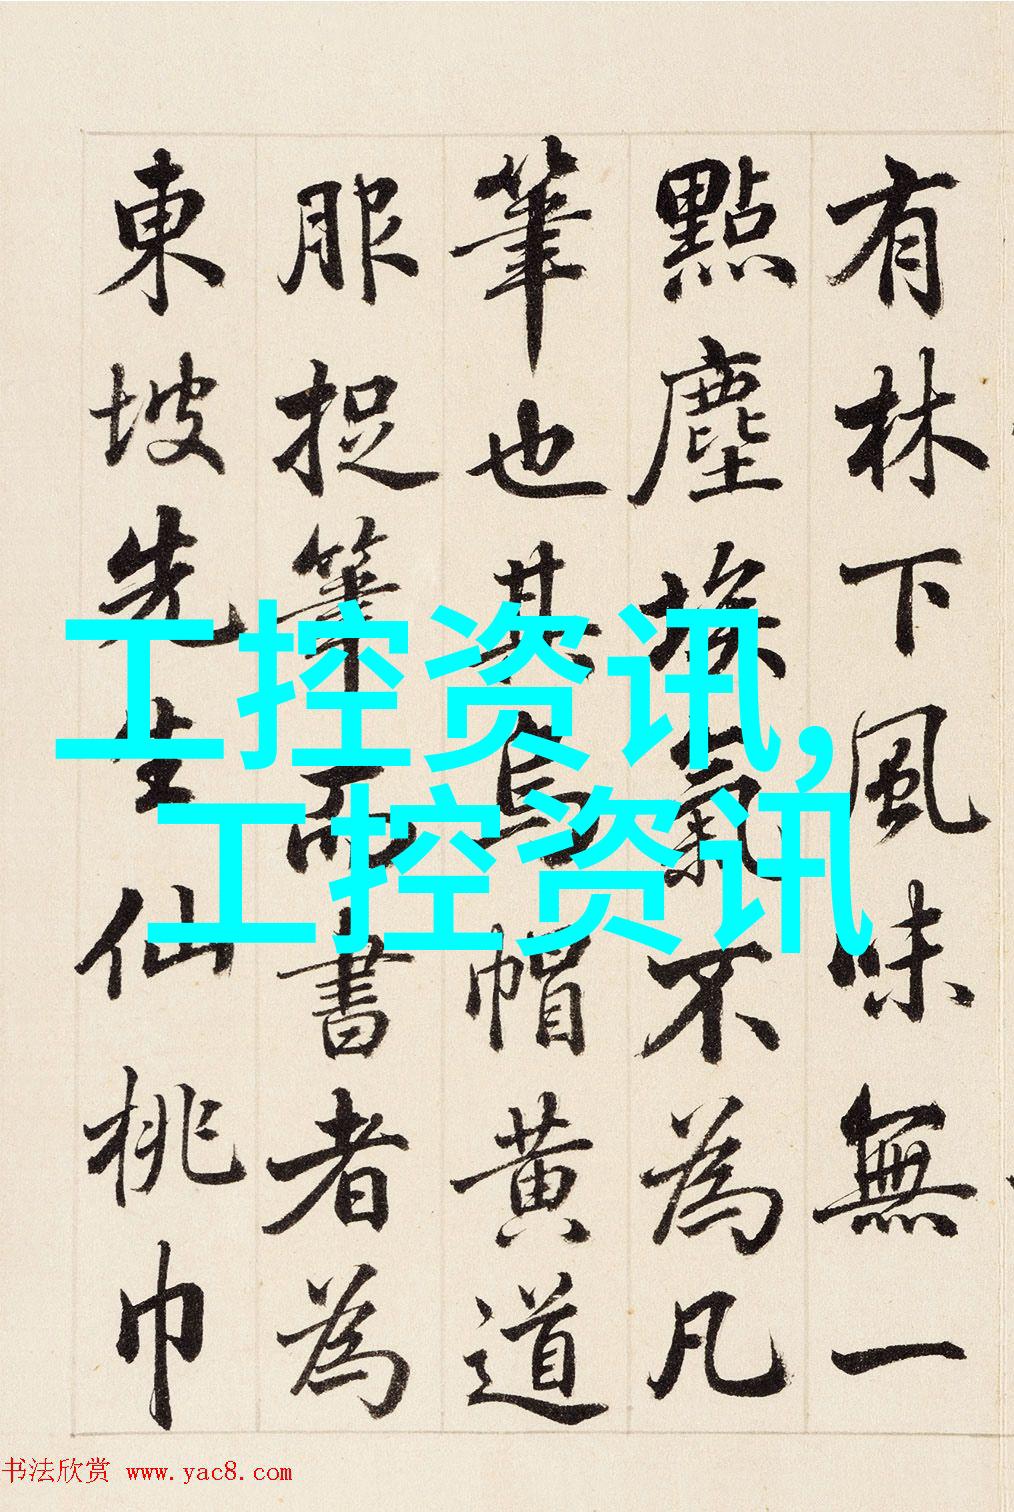 有林下風味無一
點塵埃氣不為凡
筆也其烏帽黃道
服捉筆而書者為
東坡先生仙桃巾
工控资讯,
工控资讯
书法欣赏 www.yac8.com